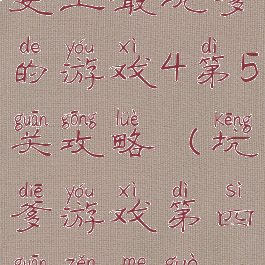 de yóu xì dì
的游戏4第5
guān gōng luè kēng
关攻略（坑
diē yóu xì dì sì
爹游戏第四
guān zěn me guò